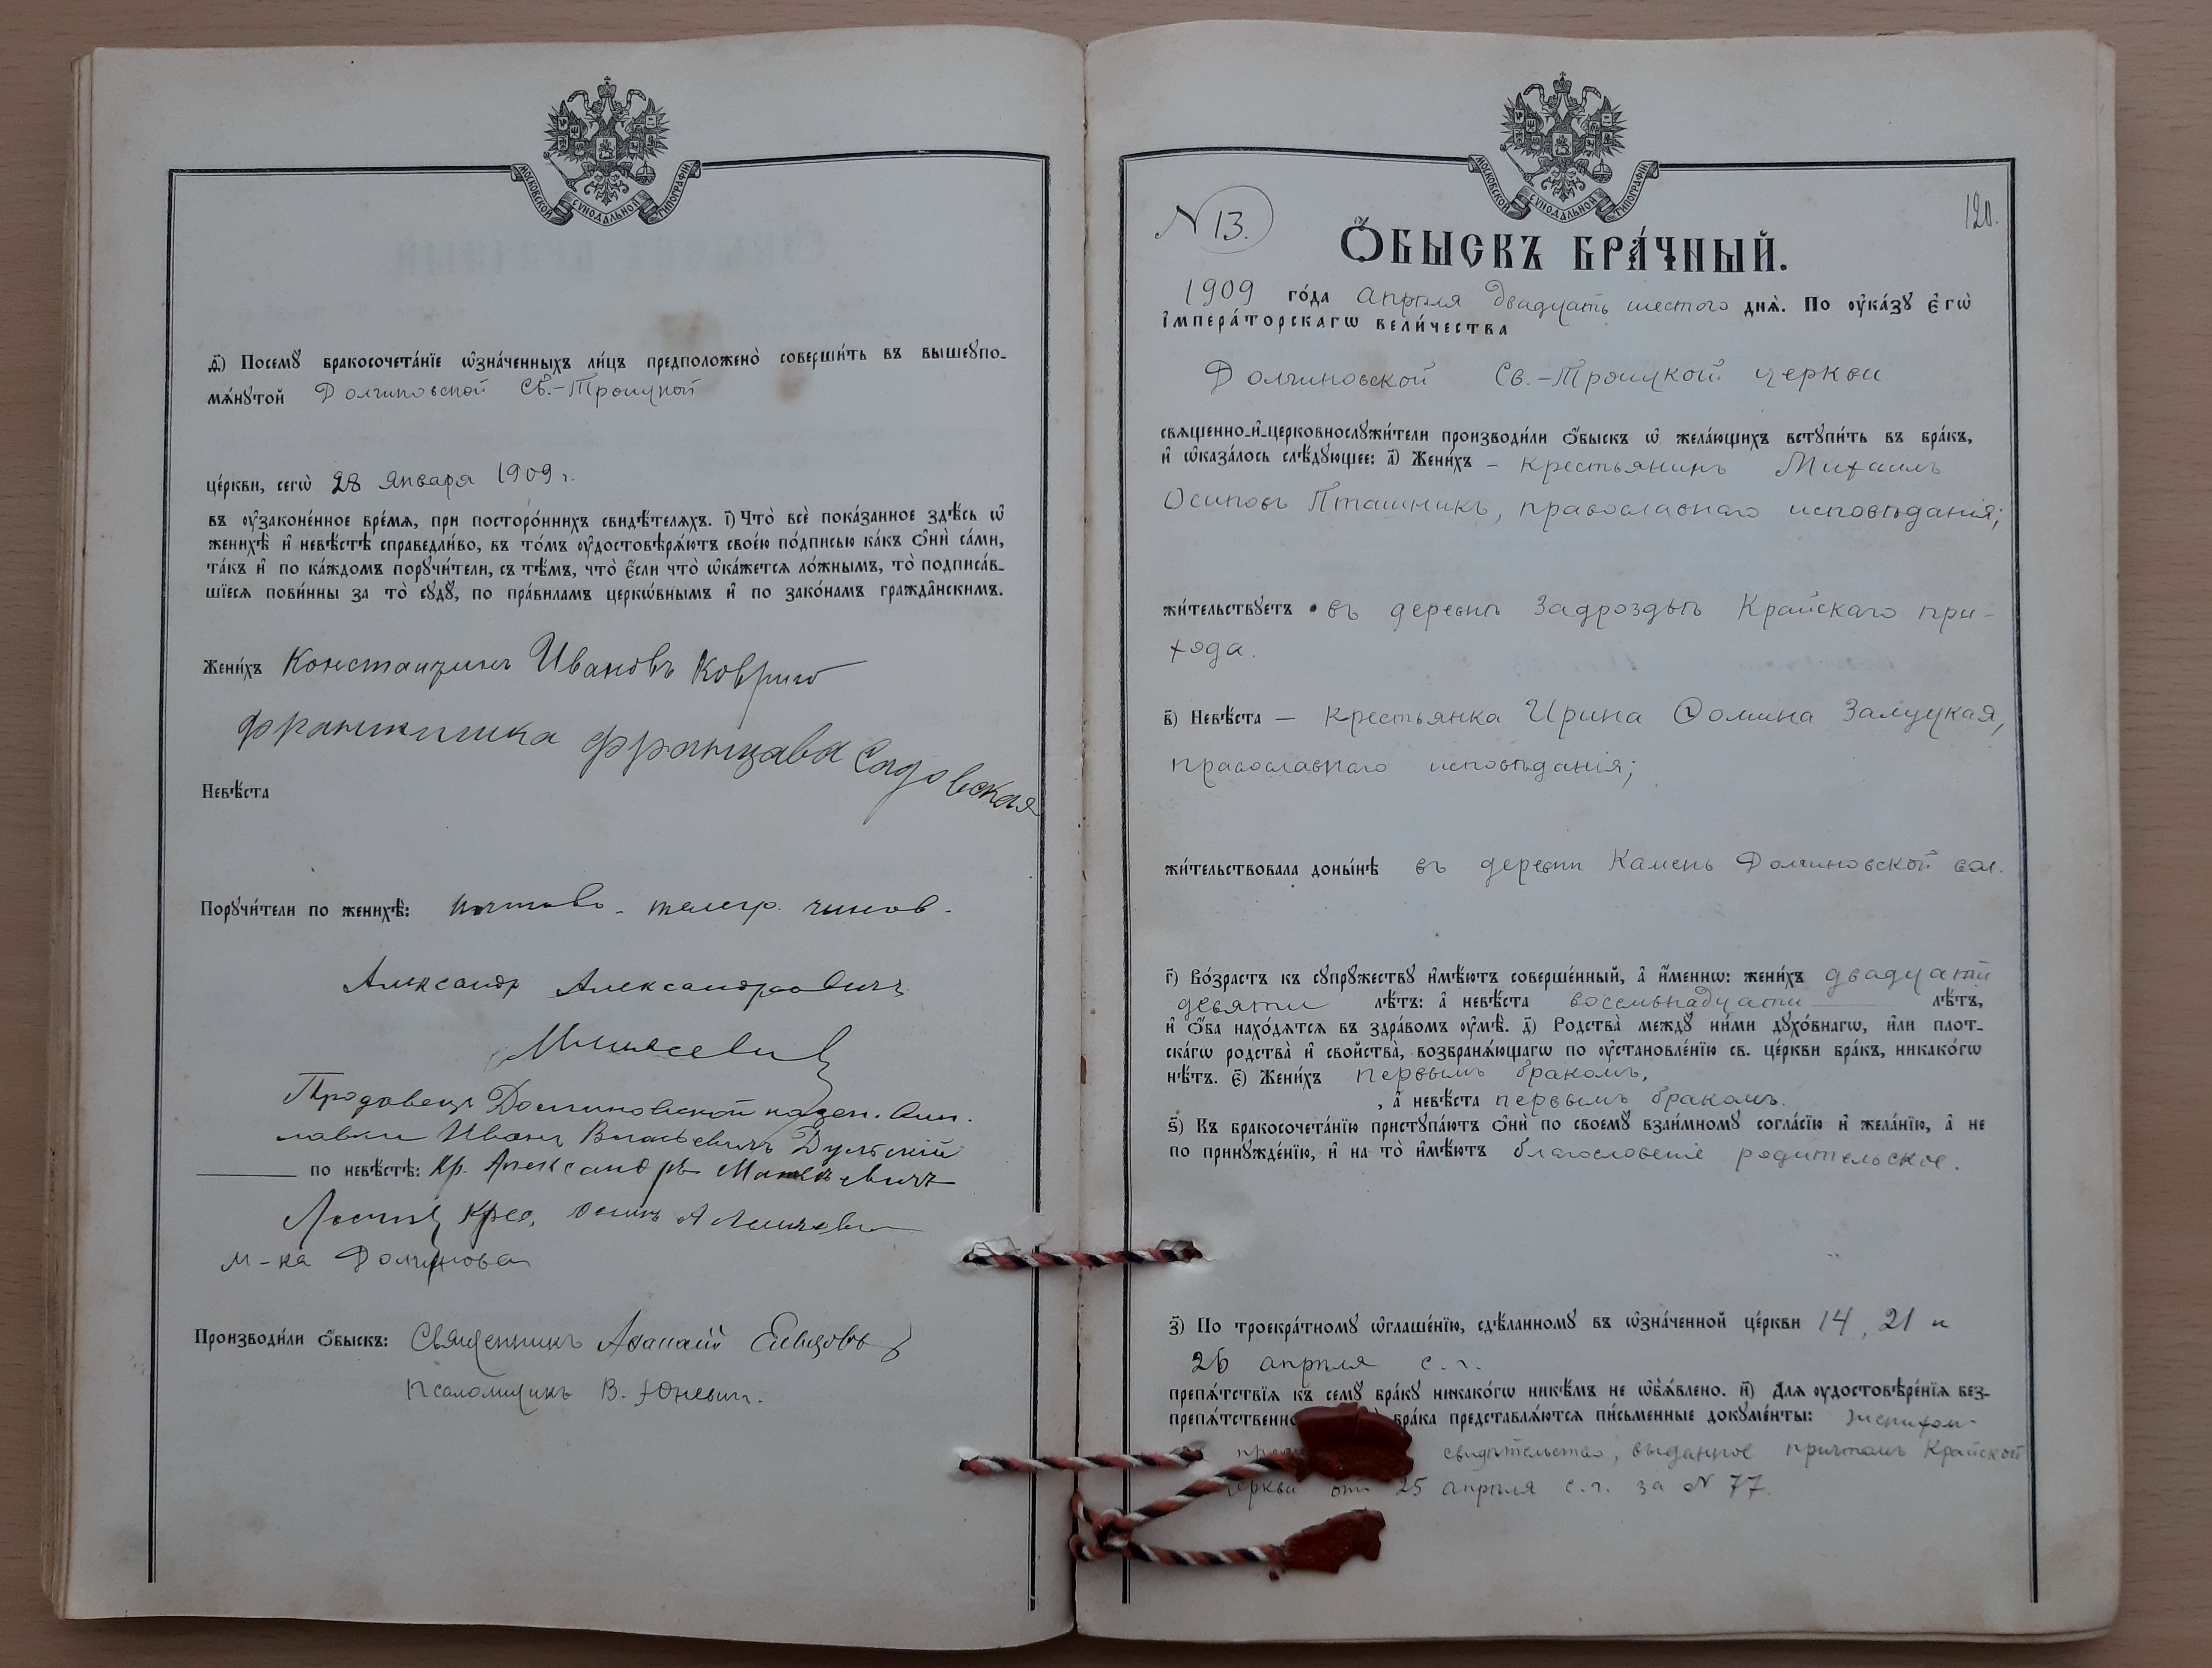 МОСКОВСКОЙ СѴНОДАЛЬНОЙ ТИПОГРАФІИ.
д҃) Посемꙋ̀ бракосочета́нїе ѡ҆зна́ченныхъ ли́цъ предположено̀ соверши́ть въ вышеꙋпо-
мѧ́нꙋтой Долгиновской Св.-Троицкой
це́ркви, сегѡ̀ 28 Января 1909 г.
въ ᲂу҆законе́нное вре́мѧ, при посторо́ннихъ свидѣ́телѧхъ. і҃) Что̀ всѐ пока́занное здѣ́сь ѡ҆
женихѣ̀ и҆ невѣ́стѣ справедли́во, въ то́мъ ᲂу҆достовѣрѧ́ютъ свое́ю по́дписью ка́къ ѻ҆нѝ са́ми,
та́къ и҆ по ка́ждомъ порꙋчи́тели, съ тѣ́мъ, что̀ є҆́сли что̀ ѡ҆ка́жетсѧ ло́жнымъ, то̀ подписа́в-
шїесѧ пови́нны за то̀ сꙋдꙋ̀, по пра́виламъ церкѡ́внымъ и҆ по зако́намъ гражда̑нскимъ.
Жени́хъ Константинъ Ивановъ Ковриго
Франтишка Францава Садовская
Невѣ́ста
Порꙋчи́тели по женихѣ̀: почтово-телегр. чинов.
Александр Александровичъ
Продавецъ Долгиновской казен. вин.
лавки Иванъ Дульский
по невѣ́стѣ: Кр. Александръ
Крес. Осипъ
м-ка Долгинова
Производи́ли ѻ҆́быскъ: Священникъ Аѳанасій
Псаломщикъ В. Юневичъ.
МОСКОВСКОЙ СѴНОДАЛЬНОЙ ТИПОГРАФІИ.
N 13.
120.
Ѻ҆́БЫСКЪ БРА́ЧНЫЙ.
1909 го́да апрѣля двадцать шестого днѧ̀. По ᲂу҆ка́зꙋ є҆гѡ̀
і҆мпера́торскагѡ вели́чества
Долгиновской Св.-Троицкой церкви
свѧще́нно-и҆-церковнослꙋжи́тели производи́ли ѻ҆́быскъ ѡ҆ жела́ющихъ встꙋпи́ть въ бра́къ,
и҆ ѡ҆каза́лось слѣ́дꙋющее: а҃) Жени́хъ – крестьянинъ Михаилъ
Осиповъ Пташникъ, православнаго исповѣданія;
жи́тельствꙋетъ въ деревнѣ Задроздьѣ Крайскаго при-
хода.
в҃) Невѣ́ста – крестьянка Ирина Ѳомина Залуцкая,
православнаго исповѣданія;
жи́тельствовала доны́нѣ въ деревнѣ Камень Долгиновской вол.
г҃) Во́зрастъ къ сꙋпрꙋ́жествꙋ и҆мѣ́ютъ соверше́нный, а҆ и҆́меннѡ: жени́хъ двадцати
девяти лѣ́тъ: а҆ невѣ́ста восемьнадцати лѣ́тъ,
и҆ ѻ҆́ба нахо́дѧтсѧ въ здра́вомъ ᲂу҆мѣ̀. д҃) Родства̀ междꙋ̀ ни́ми дꙋхо́внагѡ, и҆лѝ плот-
ска́гѡ родства̀ и҆ свойства̀, возбранѧ́ющагѡ по ᲂу҆становле́нїю св. це́ркви бра́къ, никако́гѡ
нѣ́тъ. є҃) Жени́хъ первымъ бракомъ,
, а҆ невѣ́ста первымъ бракомъ.
ѕ҃) Къ бракосочета́нїю пристꙋпа́ютъ ѻ҆нѝ по своемꙋ̀ взаи́мномꙋ согла́сїю и҆ жела́нїю, а҆ не
по принꙋжде́нїю, и҆ на то̀ и҆мѣ́ютъ благословеніе родительское.
з҃) По троекра́тномꙋ ѡ҆глаше́нїю, сдѣ́ланномꙋ въ ѡ҆зна́ченной це́ркви 14, 21 и
26 апрѣля с.г.
препѧ́тствїѧ къ семꙋ̀ бра́кꙋ никако́гѡ никѣ́мъ не ѡ҆б̾ѧ́влено. и҃) Длѧ ᲂу҆достовѣре́нїѧ без-
препѧ́тственно бра́ка представлѧ́ютсѧ пи́сьменные докꙋме́нты: женихом
свидѣтельство, выданное причтомъ Крайской
церкви отъ 25 апрѣля с.г. за N 77.